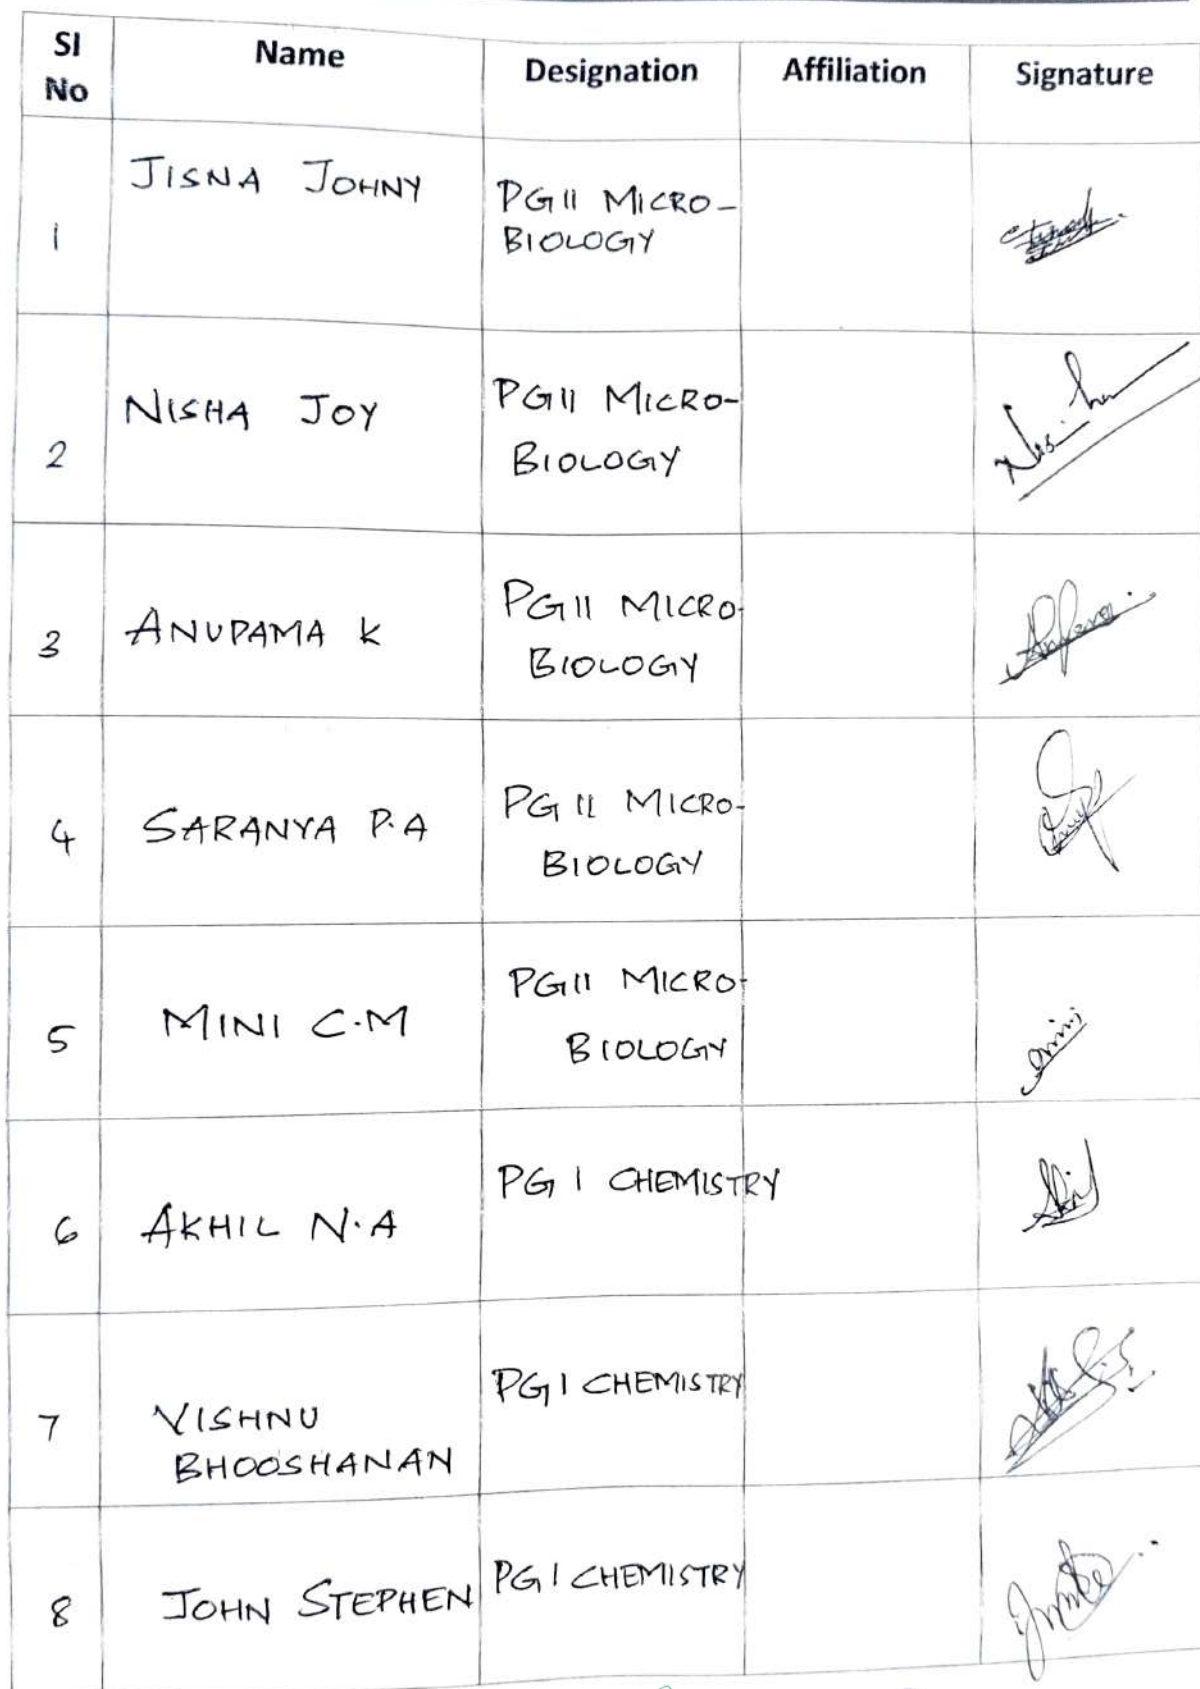 Sl No Name Designation Affiliation Signature
1 JISNA JOHNY PG II MICRO-
BIOLOGY
2 NISHA JOY PG II MICRO-
BIOLOGY
3 ANUPAMA K PG II MICRO-
BIOLOGY
4 SARANYA P.A PG II MICRO-
BIOLOGY
5 MINI C.M PG II MICRO-
BIOLOGY
6 AKHIL N.A PG I CHEMISTRY
7 VISHNU PG I CHEMISTRY
BHOOSHANAN
8 JOHN STEPHEN PG I CHEMISTRY